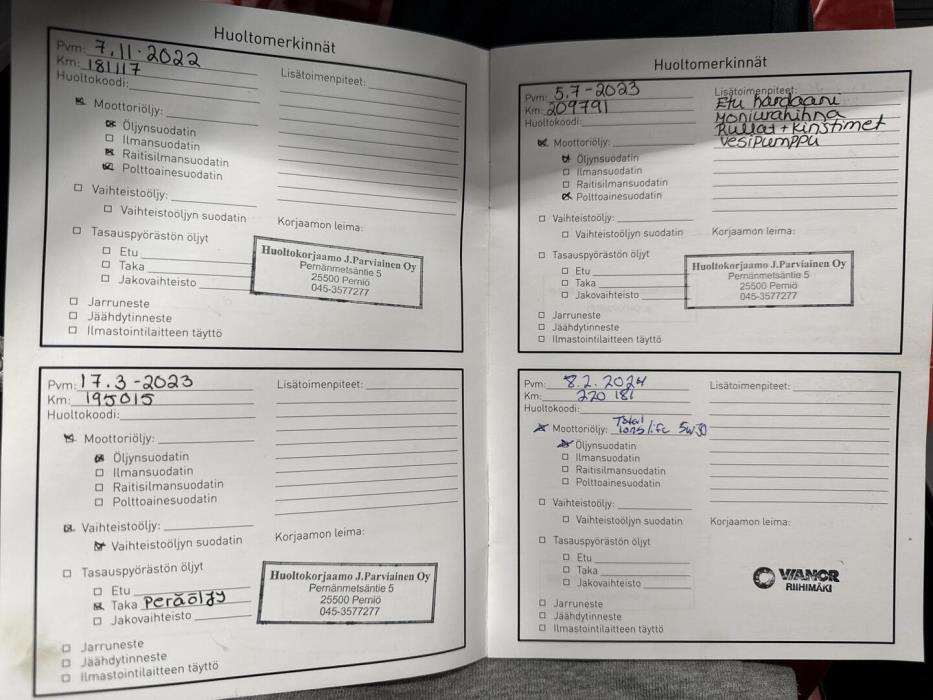 Huoltomerkinnät
Pvm: 7.11.2022
Km: 181117
Huoltokoodi:
Moottoriöljy:
Öljynsuodatin
Ilmansuodatin
Raitisilmansuodatin
Polttoainesuodatin
Vaihteistoöljy:
Vaihteistoöljyn suodatin
Tasauspyörästön öljyt
Etu
Taka
Jakovaihteisto
Jarruneste
Jäähdytinneste
Ilmastointilaitteen täyttö
Lisätoimenpiteet:
Korjaamon leima:
Huoltokorjaamo J.Parviainen Oy
Pernänmetsäntie 5
25500 Perniö
045-3577277
Pvm: 17.3-2023
Km: 195015
Huoltokoodi:
Moottoriöljy:
Öljynsuodatin
Ilmansuodatin
Raitisilmansuodatin
Polttoainesuodatin
Vaihteistoöljy:
Vaihteistoöljyn suodatin
Tasauspyörästön öljyt
Etu
Taka Peräöljy
Jakovaihteisto
Jarruneste
Jäähdytinneste
Ilmastointilaitteen täyttö
Lisätoimenpiteet:
Korjaamon leima:
Huoltokorjaamo J.Parviainen Oy
Pernänmetsäntie 5
25500 Perniö
045-3577277
Huoltomerkinnät
Pvm: 5.7-2023
Km: 209791
Huoltokoodi:
Moottoriöljy:
Öljynsuodatin
Ilmansuodatin
Raitisilmansuodatin
Polttoainesuodatin
Vaihteistoöljy:
Vaihteistoöljyn suodatin
Tasauspyörästön öljyt
Etu
Taka
Jakovaihteisto
Jarruneste
Jäähdytinneste
Ilmastointilaitteen täyttö
Lisätoimenpiteet:
Etu kardaani
Moniurahihna
Rullat + Kiristimet
Vesipumppu
Korjaamon leima:
Huoltokorjaamo J.Parviainen Oy
Pernänmetsäntie 5
25500 Perniö
045-3577277
Pvm: 8.2.2024
Km: 220 181
Huoltokoodi:
Moottoriöljy: Total longlife 5w30
Öljynsuodatin
Ilmansuodatin
Raitisilmansuodatin
Polttoainesuodatin
Vaihteistoöljy:
Vaihteistoöljyn suodatin
Tasauspyörästön öljyt
Etu
Taka
Jakovaihteisto
Jarruneste
Jäähdytinneste
Ilmastointilaitteen täyttö
Lisätoimenpiteet:
Korjaamon leima:
VIANOR
RIIHIMÄKI